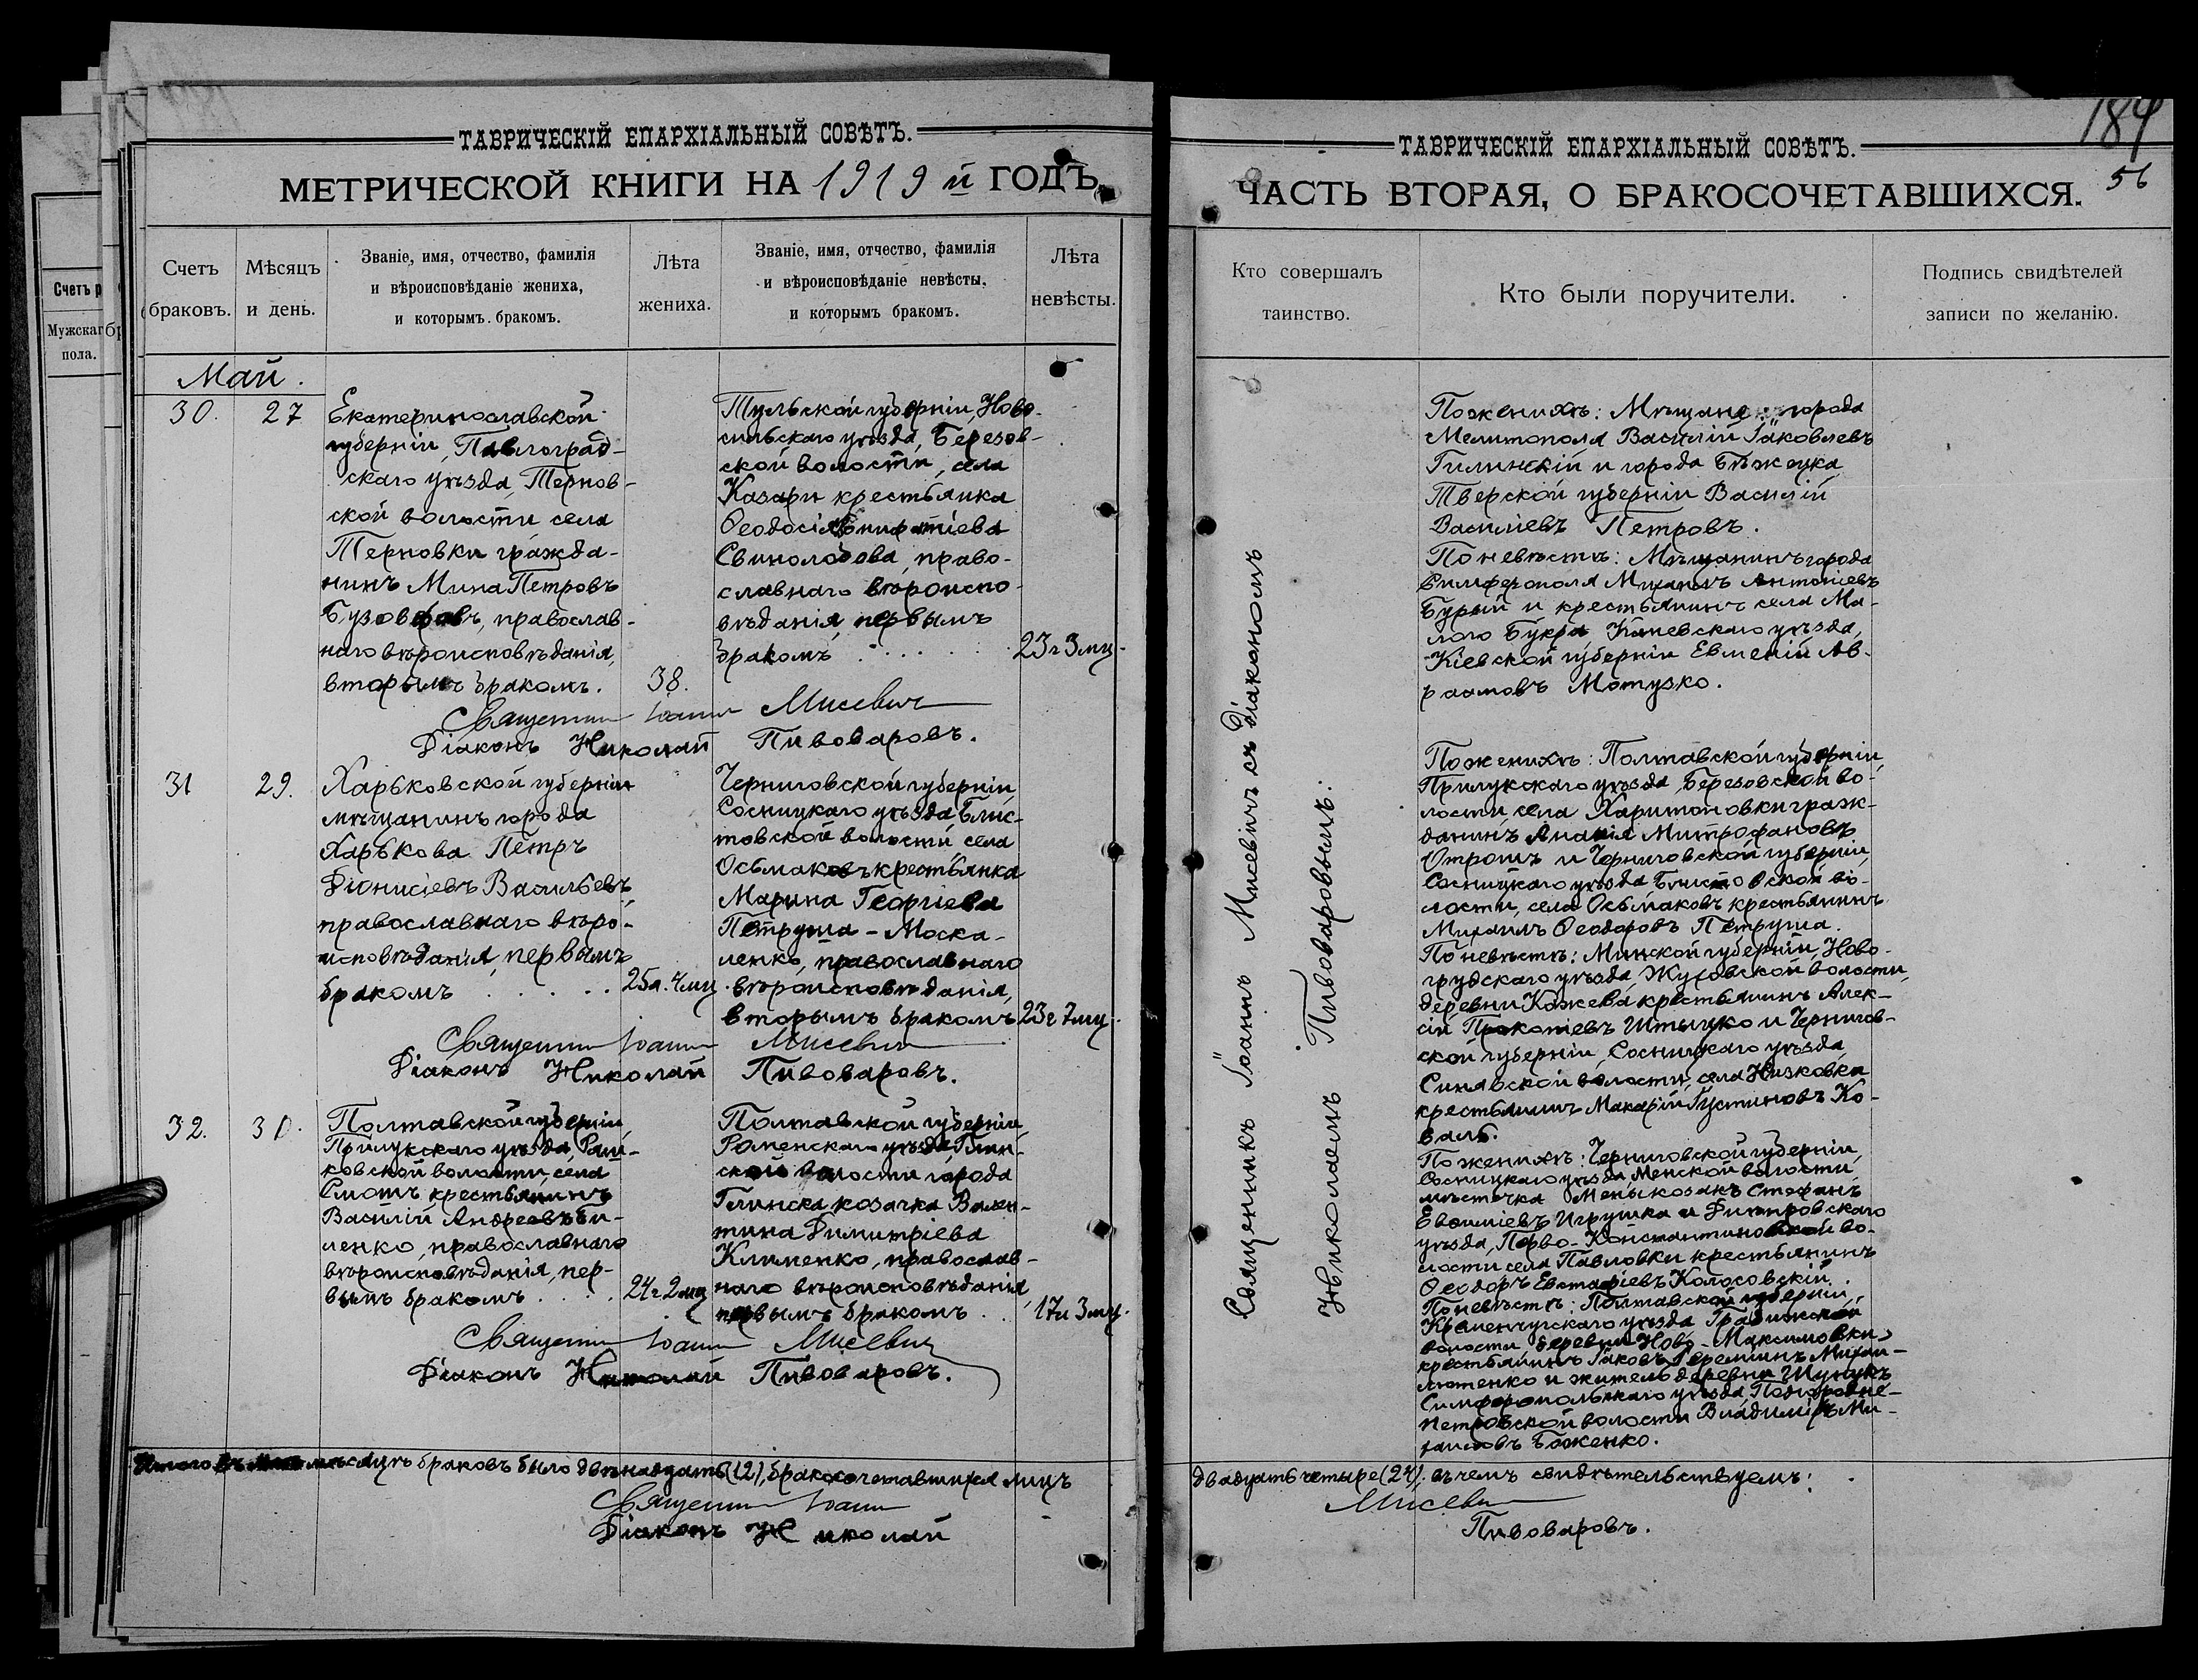 ТАВРИЧЕСКІЙ ЕПАРХІАЛЬНЫЙ СОВѢТЪ.
МЕТРИЧЕСКОЙ КНИГИ НА 1919 й ГОДЪ,
Счетъ
браковъ.
Мѣсяцъ
и день.
Званіе, имя, отчество, фамилія
и вѣроисповѣданіе жениха,
и которымъ бракомъ.
Лѣта
жениха.
Званіе, имя, отчество, фамилія
и вѣроисповѣданіе невѣсты,
и которымъ бракомъ.
Лѣта
невѣсты.
Май.
30.
27
Екатеринославской
губерніи, Павлоград-
скаго уѣзда, Тернов-
ской волости села
Терновки гражда-
нинъ Мина Петровъ
православ-
наго вѣроисповѣданія,
вторымъ бракомъ.
38.
Тульской губерніи, Ново-
сильскаго уѣзда, Березов-
ской волости, села
Казари крестьянка
Ѳеодосія
Свинолобова, право-
славнаго вѣроиспо-
вѣданія, первымъ
бракомъ
23 г 3 мц.
Священник Іоанн Мисевич
Діаконъ Николай Пивоваровъ.
31
29.
Харьковской губерніи
мѣщанинъ города
Харькова Петръ
Діонисіевъ Васильевъ,
православнаго вѣро-
исповѣданія, первымъ
бракомъ
25 л. 4 мц.
Черниговской губерніи
Сосницкаго уѣзда Блис-
товской волости, села
Осьмаковъ крестьянка
Марина Георгіева
Петруша - Моска-
ленко, православнаго
вѣроисповѣданія,
вторымъ бракомъ
23 г 7 мц.
Священник Іоанн Мисевич
Діаконъ Николай Пивоваровъ.
32.
30.
Полтавской губерніи
Прилукскаго уѣзда,
ковской волости, села
Смошъ крестьянинъ
Василій Андреевъ Би-
ленко, православнаго
вѣроисповѣданія, пер-
вымъ бракомъ
24 г 2 мц
Полтавской губерніи
Роменскаго уѣзда Глин-
ской волости города
Глинска козачка Вален-
тина Димитріева
Клименко, православ-
наго вѣроисповѣданія
первымъ бракомъ
17 л 3 мц.
Священник Іоанн Мисевич
Діаконъ Николай Пивоваровъ.
Итого въ мѣсяцѣ браковъ было двѣнадцать (12), бракосочетавшихся лицъ
Священник Іоанн
Діаконъ Николай
184
ТАВРИЧЕСКІЙ ЕПАРХІАЛЬНЫЙ СОВѢТЪ.
ЧАСТЬ ВТОРАЯ, О БРАКОСОЧЕТАВШИХСЯ.
56
Кто совершалъ
таинство.
Кто были поручители.
Подпись свидѣтелей
записи по желанію.
Священникъ Іоаннъ Мисевичъ съ діакономъ
Николаемъ Пивоваровымъ.
По женихѣ: Мѣщане города
Мелитополя Василій Іаковлевъ
Гилинскій и города Бѣжецка
Тверской губерніи Василій
Василіевъ Петровъ.
По невѣстѣ: Мѣщанинъ города
Симферополя Михаилъ Антоніевъ
Бурый и крестьянинъ села Ма-
лого Букра, Каневскаго уѣзда,
Кіевской губерніи Евменій Ав-
раамовъ Мотузко.
По женихѣ: Полтавской губерніи,
Прилукскаго уѣзда, Березовской во-
лости села Харитоновки граж-
данинъ Ананія Митрофановъ
и Черниговской губерніи,
Сосницкаго уѣзда Блистовской во-
лости, села Осьмаковъ крестьянинъ
Михаилъ Ѳеодоровъ Петруша.
По невѣстѣ: Минской губерніи, Ново-
грудскаго уѣзда, Жуховской волости,
деревни Кожева крестьянинъ Алек-
сій Прокопіевъ Штыцко и Чернигов-
ской губерніи, Сосницкаго уѣзда
Синявской волости, села Низковка
крестьянинъ Макарій Іустиновъ Ко-
валь.
По женихѣ: Черниговской губерніи,
Сосницкаго уѣзда, Менской волости
мѣстечка Мены козакъ Стефанъ
Евѳиміевъ Игрушка и Днѣпровскаго
уѣзда, Перво-Константиновской во-
лости села Павловки крестьянинъ
Ѳеодоръ Евстафіевъ Колосовскій.
По невѣстѣ: Полтавской губерніи,
Кременчугскаго уѣзда Градижской
волости, деревни Ново-Максимовки,
крестьянинъ Іаковъ Михай-
лютенко и житель деревни Шунукъ
Симферопольскаго уѣзда Подгородне-
Петровской волости Владиміръ Ми-
хаиловъ Боженко.
двадцать четыре (24). въ чемъ свидѣтельствуемъ:
Мисевич
Пивоваровъ.
Счетъ р
Мужскаг
пола.